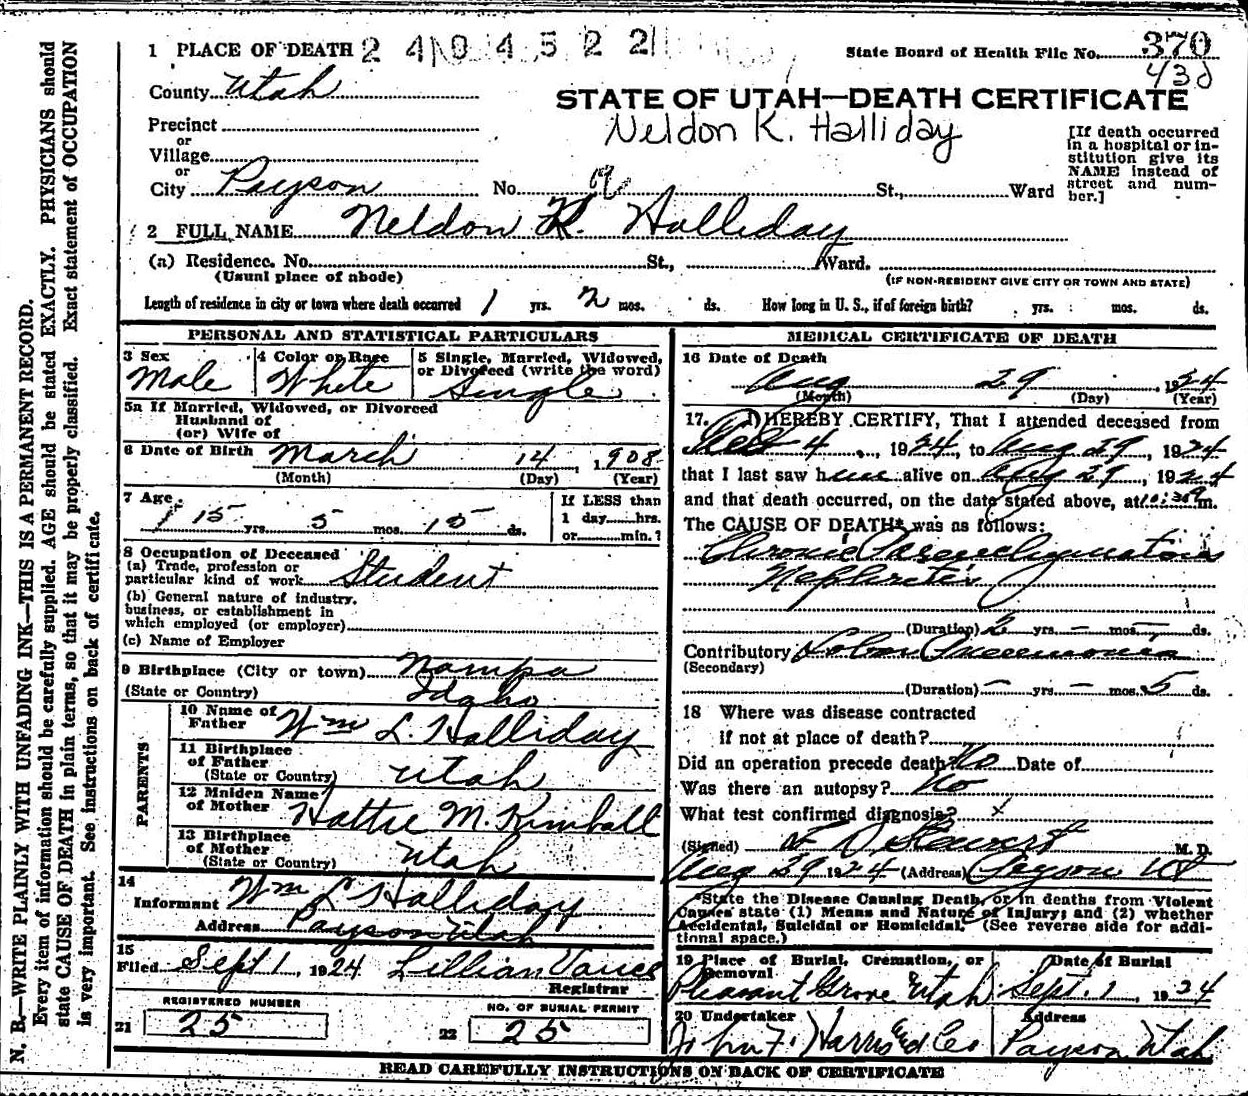 1 PLACE OF DEATH 2 4 0 4 5 2 2
State Board of Health File No. 370
430
County Utah
STATE OF UTAH—DEATH CERTIFICATE
Neldon K. Halliday
Precinct
or
Village
or
City Payson No. St., Ward
[If death occurred in a hospital or institution give its NAME instead of street and number.]
2 FULL NAME Neldon K. Halliday
(a) Residence. No. St., Ward.
(Usual place of abode) (IF NON-RESIDENT GIVE CITY OR TOWN AND STATE)
Length of residence in city or town where death occurred 1 yrs. 2 mos. ds. How long in U. S., if of foreign birth? yrs. mos. ds.
PERSONAL AND STATISTICAL PARTICULARS
3 Sex Male
4 Color or Race White
5 Single, Married, Widowed, or Divorced (write the word) Single
5a If Married, Widowed, or Divorced
Husband of
(or) Wife of
6 Date of Birth March 14, 1908
(Month) (Day) (Year)
7 Age 15 yrs. 5 mos. 15 ds.
If LESS than
1 day hrs.
or min.?
8 Occupation of Deceased
(a) Trade, profession or
particular kind of work Student
(b) General nature of industry,
business, or establishment in
which employed (or employer)
(c) Name of Employer
9 Birthplace (City or town) Nampa
(State or Country) Idaho
PARENTS
10 Name of
Father Wm L. Halliday
11 Birthplace
of Father
(State or Country) Utah
12 Maiden Name
of Mother Hattie M. Kimball
13 Birthplace
of Mother
(State or Country) Utah
14
Informant Wm L Halliday
Address Payson Utah
15
Filed Sept 1, 1924 Lillian Vance
Registrar
REGISTERED NUMBER
21 25
NO. OF BURIAL PERMIT
22 25
MEDICAL CERTIFICATE OF DEATH
16 Date of Death
Aug 29, 1924
(Month) (Day) (Year)
17. I HEREBY CERTIFY, That I attended deceased from
4, 1924, to Aug 29, 1924
that I last saw him alive on Aug 29, 1924
and that death occurred, on the date stated above, at 10:30 m.
The CAUSE OF DEATH* was as follows:
Chronic Parenchymatous
Nephritis
(Duration) 2 yrs. – mos. – ds.
Contributory Lobar Pneumonia
(Secondary)
(Duration) – yrs. – mos. 5 ds.
18 Where was disease contracted
if not at place of death?
Did an operation precede death? No Date of
Was there an autopsy? No
What test confirmed diagnosis? x
(Signed) Stewart M. D.
Aug 29 1924 (Address) Payson Ut
*State the Disease Causing Death, or in deaths from Violent
Causes state (1) Means and Nature of Injury; and (2) whether
Accidental, Suicidal or Homicidal. (See reverse side for addi-
tional space.)
19 Place of Burial, Cremation, or
Removal
Pleasant Grove Utah
Date of Burial
Sept. 1, 1924
20 Undertaker
John F. Harris Co
Address
Payson, Utah
READ CAREFULLY INSTRUCTIONS ON BACK OF CERTIFICATE
N. B.—WRITE PLAINLY WITH UNFADING INK—THIS IS A PERMANENT RECORD.
Every item of information should be carefully supplied. AGE should be stated EXACTLY. PHYSICIANS should
state CAUSE OF DEATH in plain terms, so that it may be properly classified. Exact statement of OCCUPATION
is very important. See instructions on back of certificate.